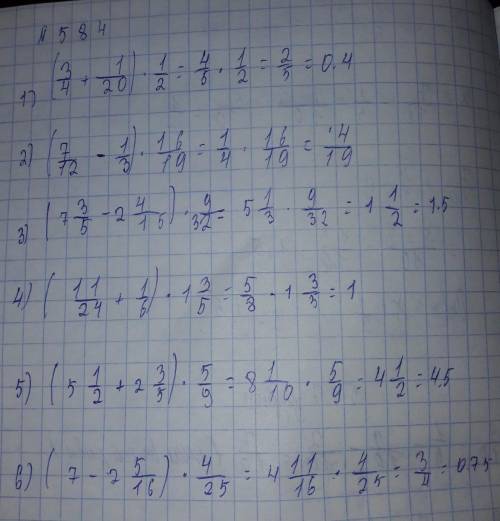 № 584
1) (3/4 + 1/20) · 1/2 = 4/5 · 1/2 = 2/5 = 0.4
2) (7/12 - 1/3) · 16/19 = 1/4 · 16/19 = 4/19
3) (7 3/5 - 2 4/15) · 9/32 = 5 1/3 · 9/32 = 1 1/2 = 1.5
4) (11/24 + 1/6) · 1 3/5 = 5/8 · 1 3/5 = 1
5) (5 1/2 + 2 3/5) · 5/9 = 8 1/10 · 5/9 = 4 1/2 = 4.5
6) (7 - 2 5/16) · 4/25 = 4 11/16 · 4/25 = 3/4 = 075